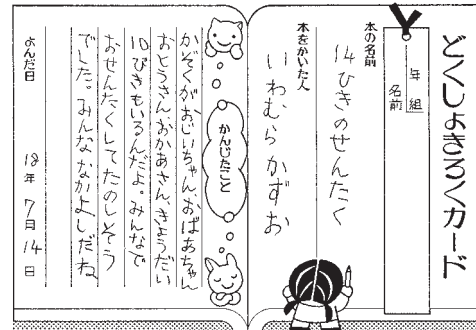 どくしょきろくカード
年 組
名前
本の名前
14ひきのせんたく
本をかいた人
いわむらかずお
かんじたこと
かぞくが、おじいちゃん、おばあちゃん
おとうさん、おかあさん、きょうだい
10ぴきもいるんだよ。みんなで
おせんたくしてたのしそう
でした。みんななかよしだね
よんだ日 18年 7月 14日